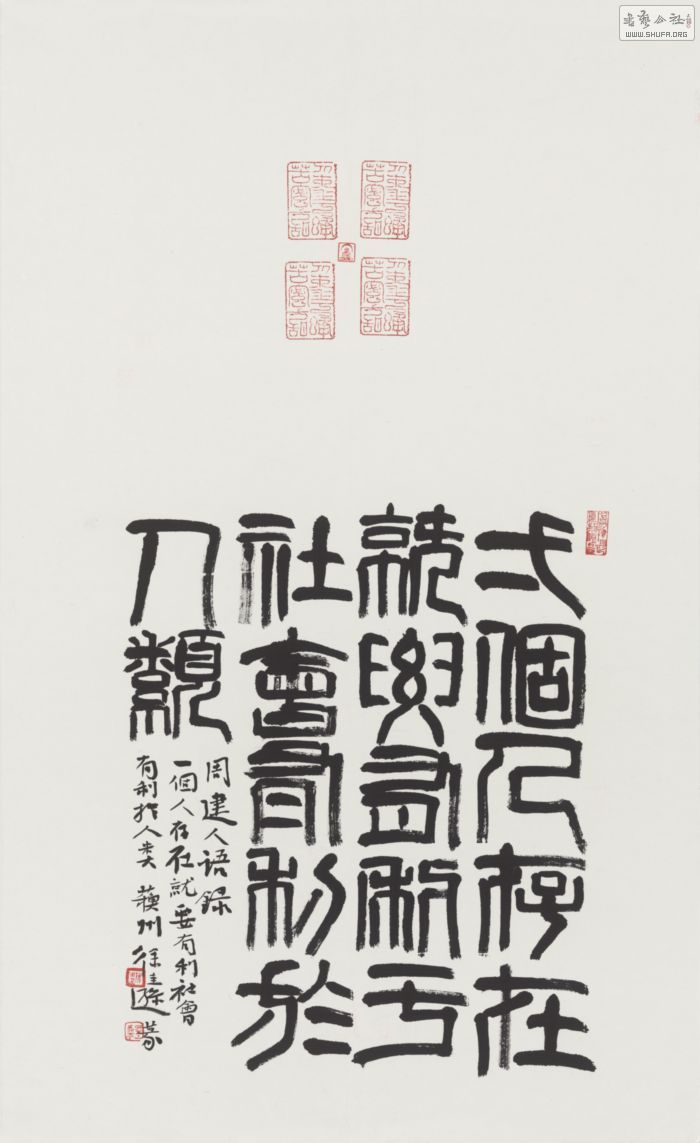 書藝公社
WWW.SHUFA.ORG
弌個人存在
就要有利于
社會有利於
人類
周建人語錄
一個人存在就要有利社會
有利於人类 蘇州徐圭 篆